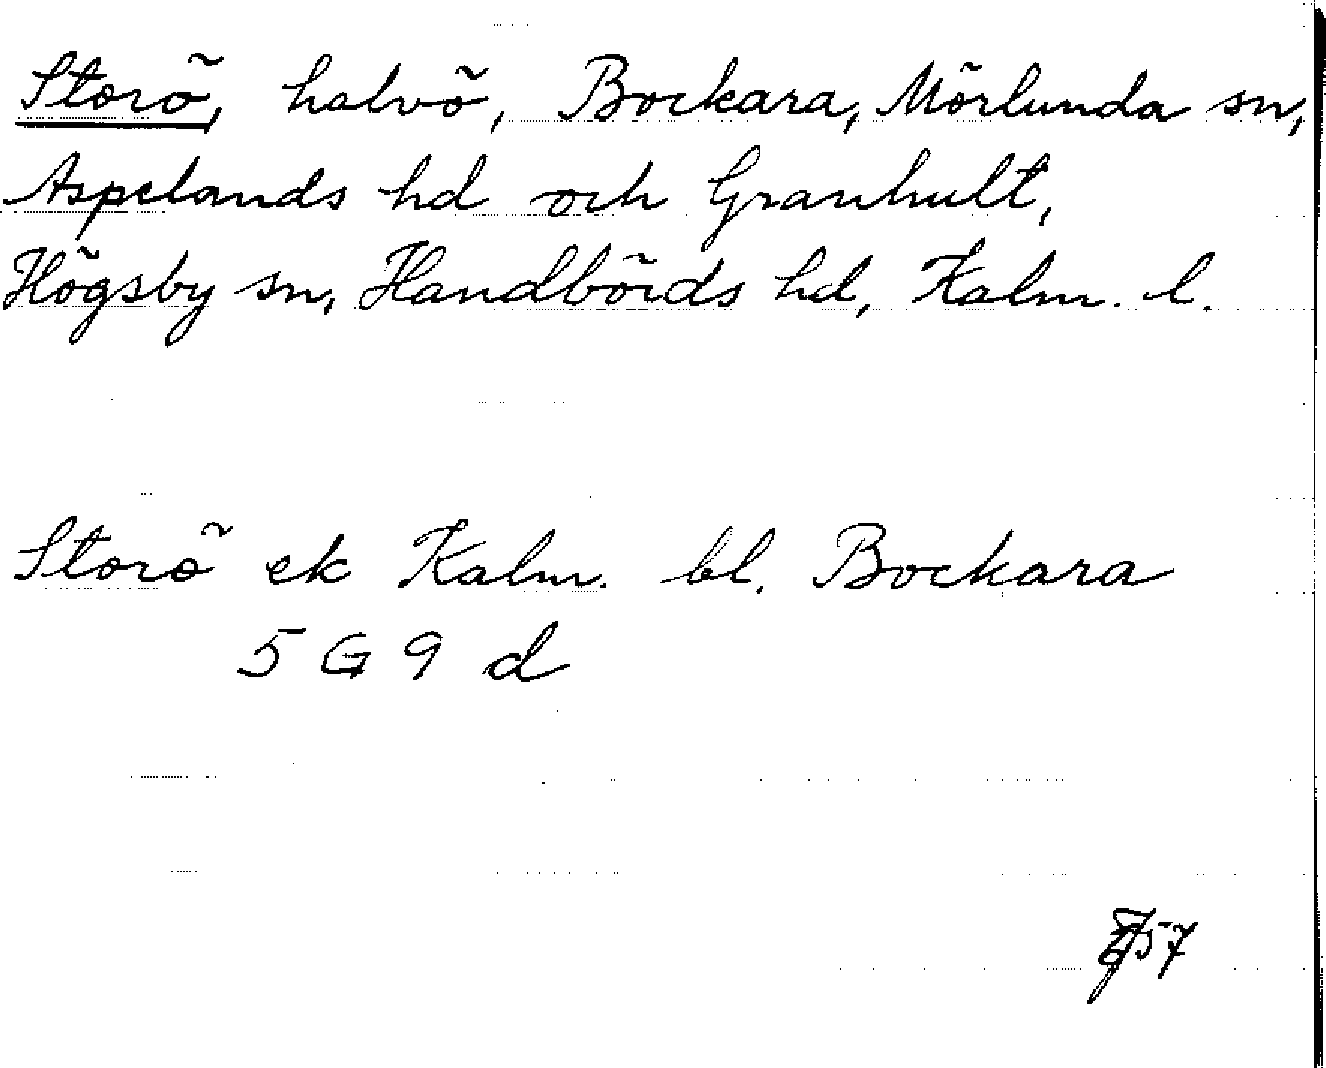 Storö, halvö, Bockara, Mörlunda sn,
Aspelands hd och Granhult,
Högsby sn, Handbörds hd, Kalm. l.
Storö ek Kalm. bl. Bockara
5 G 9 d
57